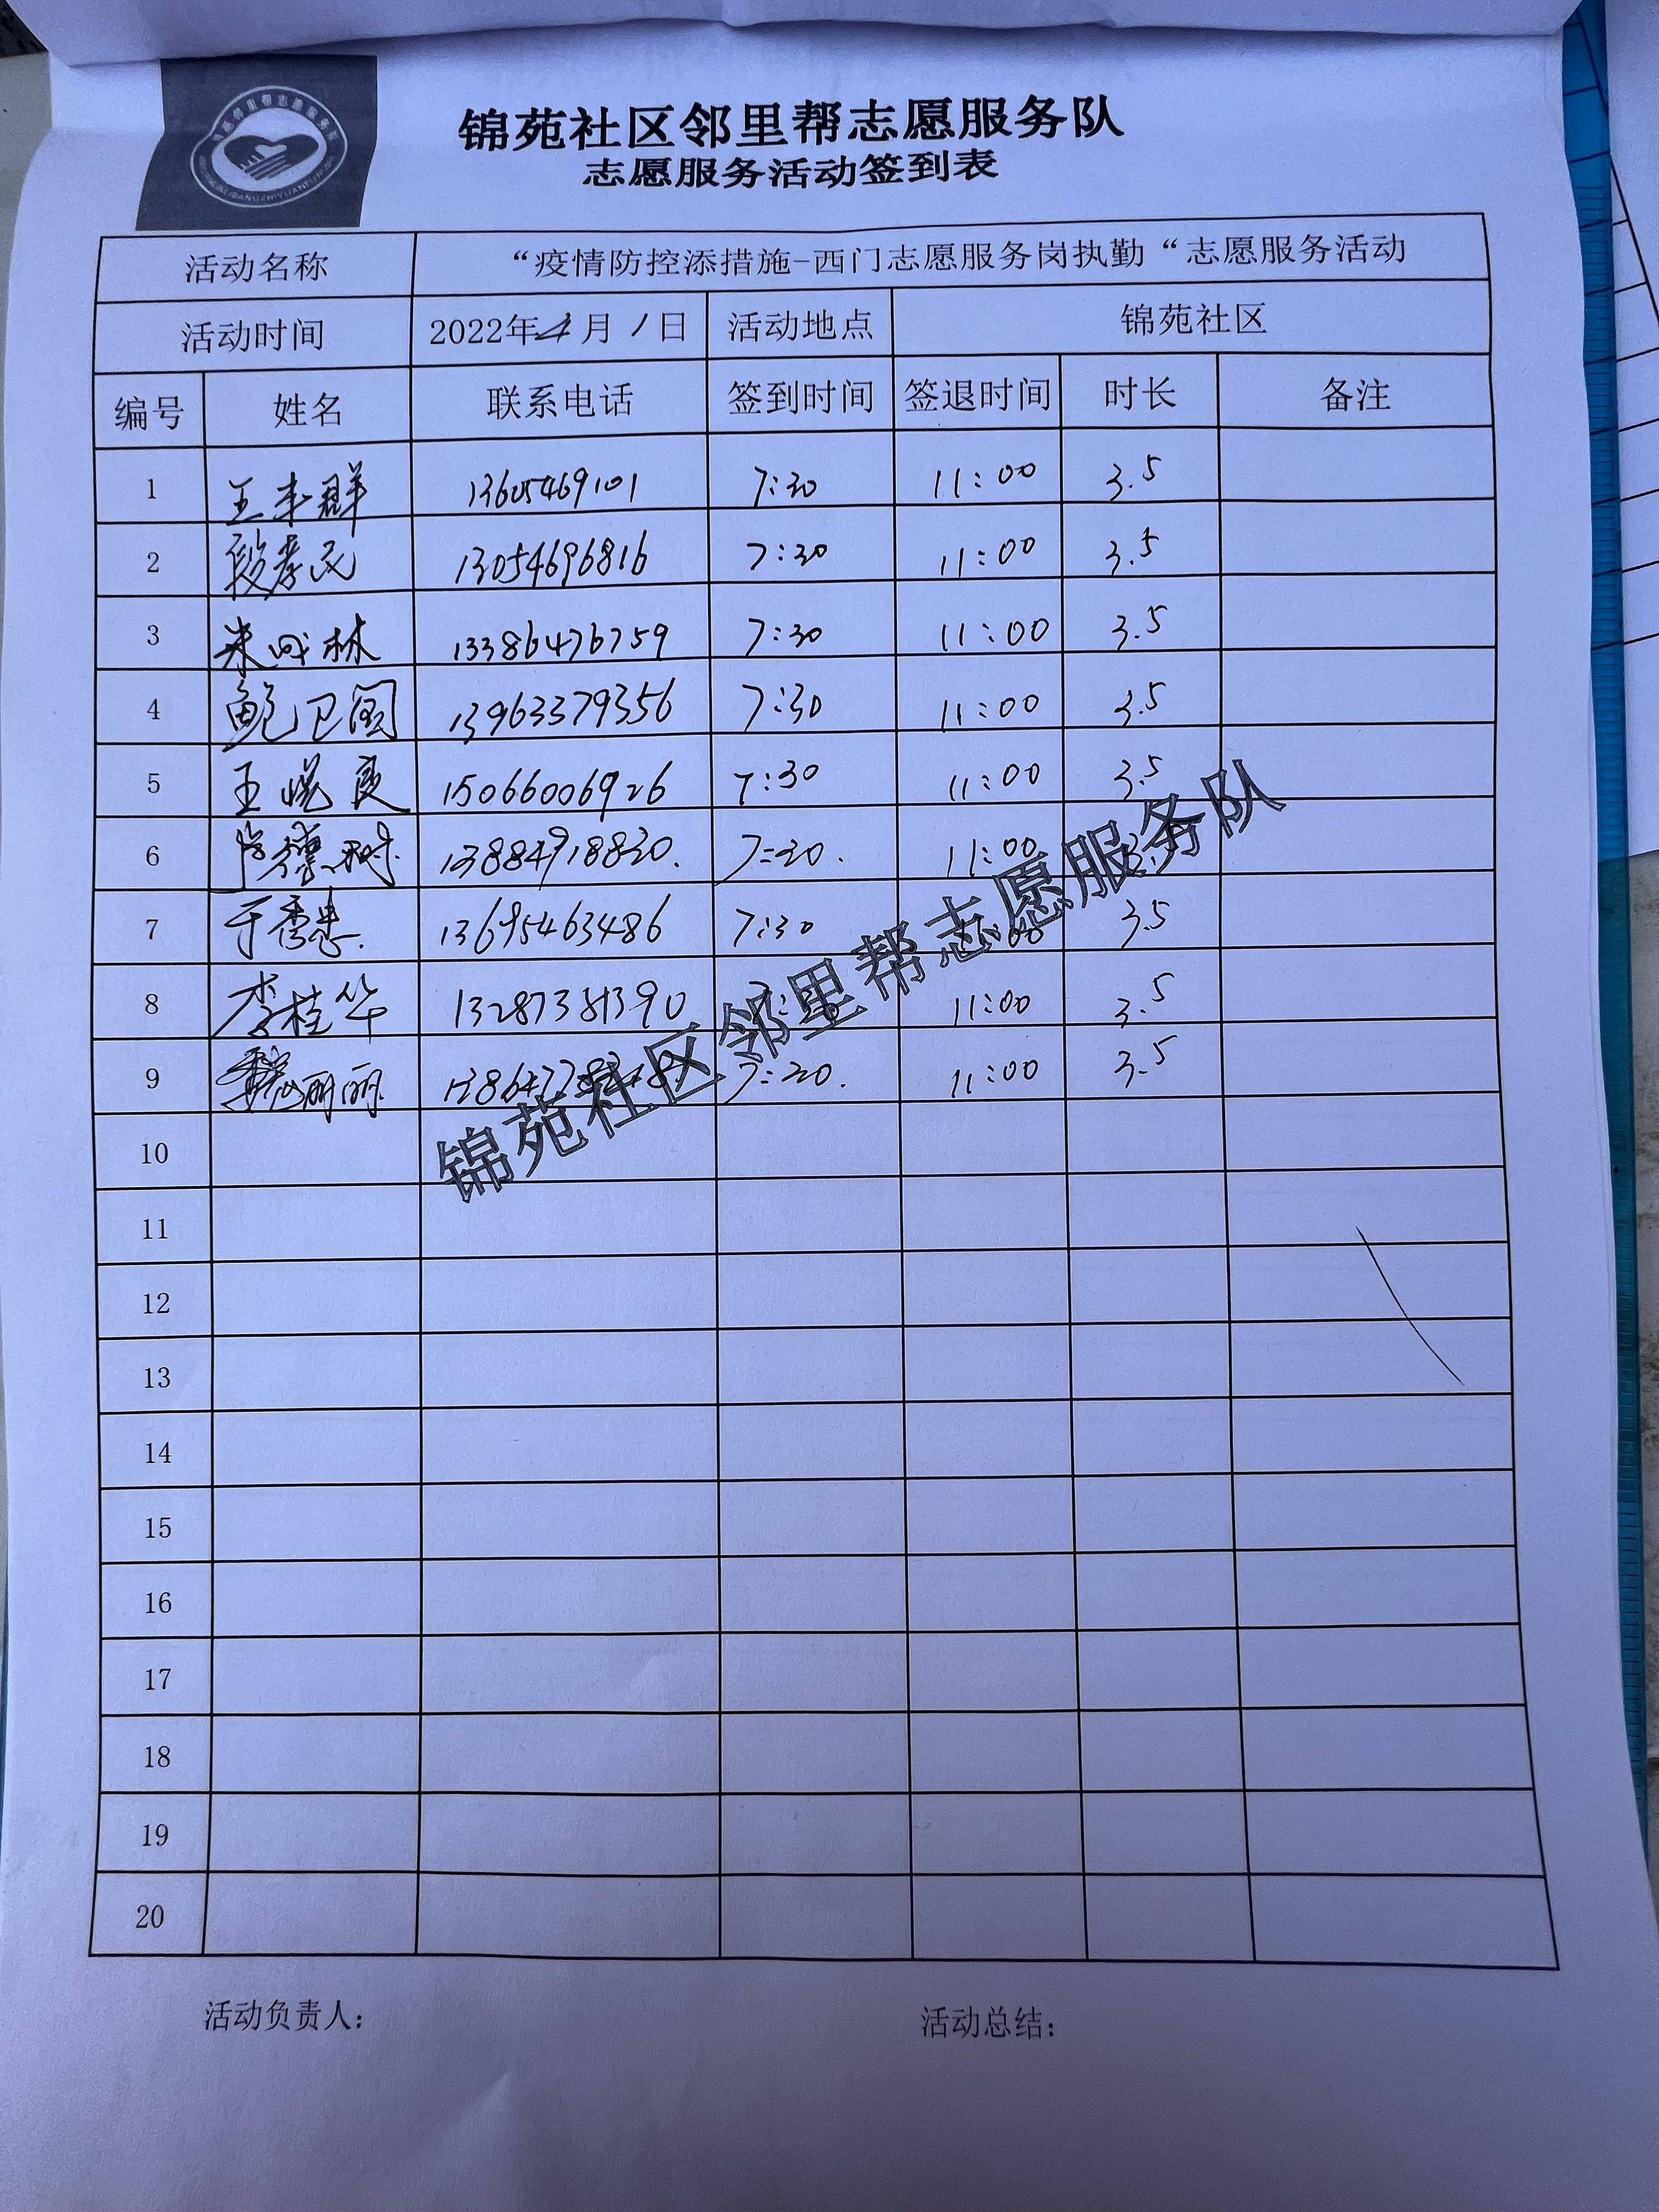 锦苑社区邻里帮志愿服务队
志愿服务活动签到表
活动名称 “疫情防控添措施-西门志愿服务岗执勤“志愿服务活动
活动时间 2022年 月1日 活动地点 锦苑社区
编号 姓名 联系电话 签到时间 签退时间 时长 备注
1 13605469101 7:30 11:00 3.5
2 段孝民 13054696816 7:30 11:00 3.5
3 朱成林 13386476759 7:30 11:00 3.5
4 鲍卫国 13963379356 7:30 11:00 3.5
5 15066006926 7:30 11:00 3.5
6 13884918830. 7:30. 11:00
7 于秀忠. 13695463486 7:30 11:00 3.5
8 李桂华 7:30 11:00 3.5
9 魏丽丽 7:30. 11:00 3.5
10
11
12
13
14
15
16
17
18
19
20
锦苑社区邻里帮志愿服务队
活动负责人: 活动总结: